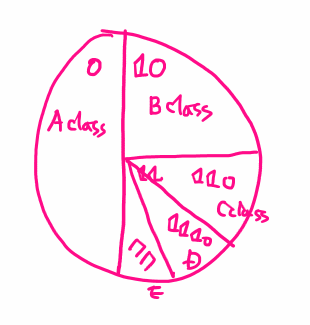 0
A class
10
B class
11
110
C class
1110
D
1111
E